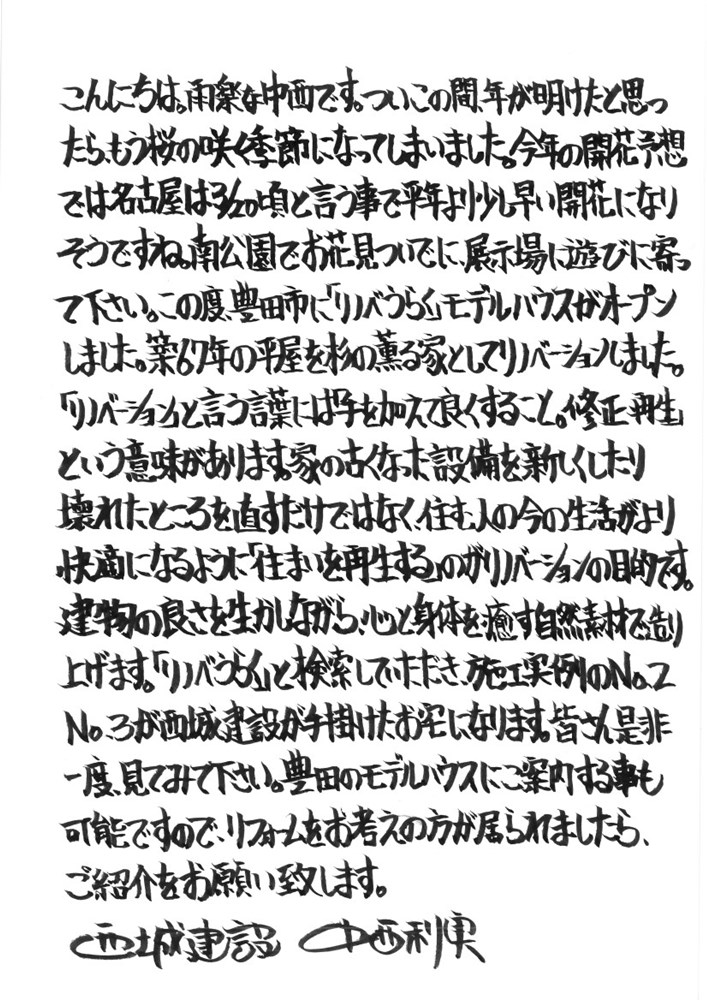 こんにちは。雨楽な中西です。ついこの間、年が明けたと思っ
たら、もう桜の咲く季節になってしまいました。今年の開花予想
では名古屋は3/20頃と言う事で平年より少し早い開花になり
そうですね。南公園でお花見ついでに、展示場に遊びに寄っ
て下さい。この度、豊田市に「リノベうらく」モデルハウスがオープン
しました。築67年の平屋を杉の薫る家としてリノベーションしました。
「リノベーション」と言う言葉には「手を加えて良くすること。修正、再生」
という意味があります。家の古くなった設備を新しくしたり
壊れたところを直すだけではなく、住む人の今の生活がより
快適になるように「住まいを再生する」のがリノベーションの目的です。
建物の良さを生かしながら、心と身体を癒す自然素材で造り
上げます。「リノベうらく」と検索していただき、施工実例のNo.2
No.3が西城建設が手掛けたお宅になります。皆さん是非
一度、見てみて下さい。豊田のモデルハウスにご案内する事も
可能ですので、リフォームをお考えの方が居られましたら、
ご紹介をお願い致します。
西城建設 中西利実